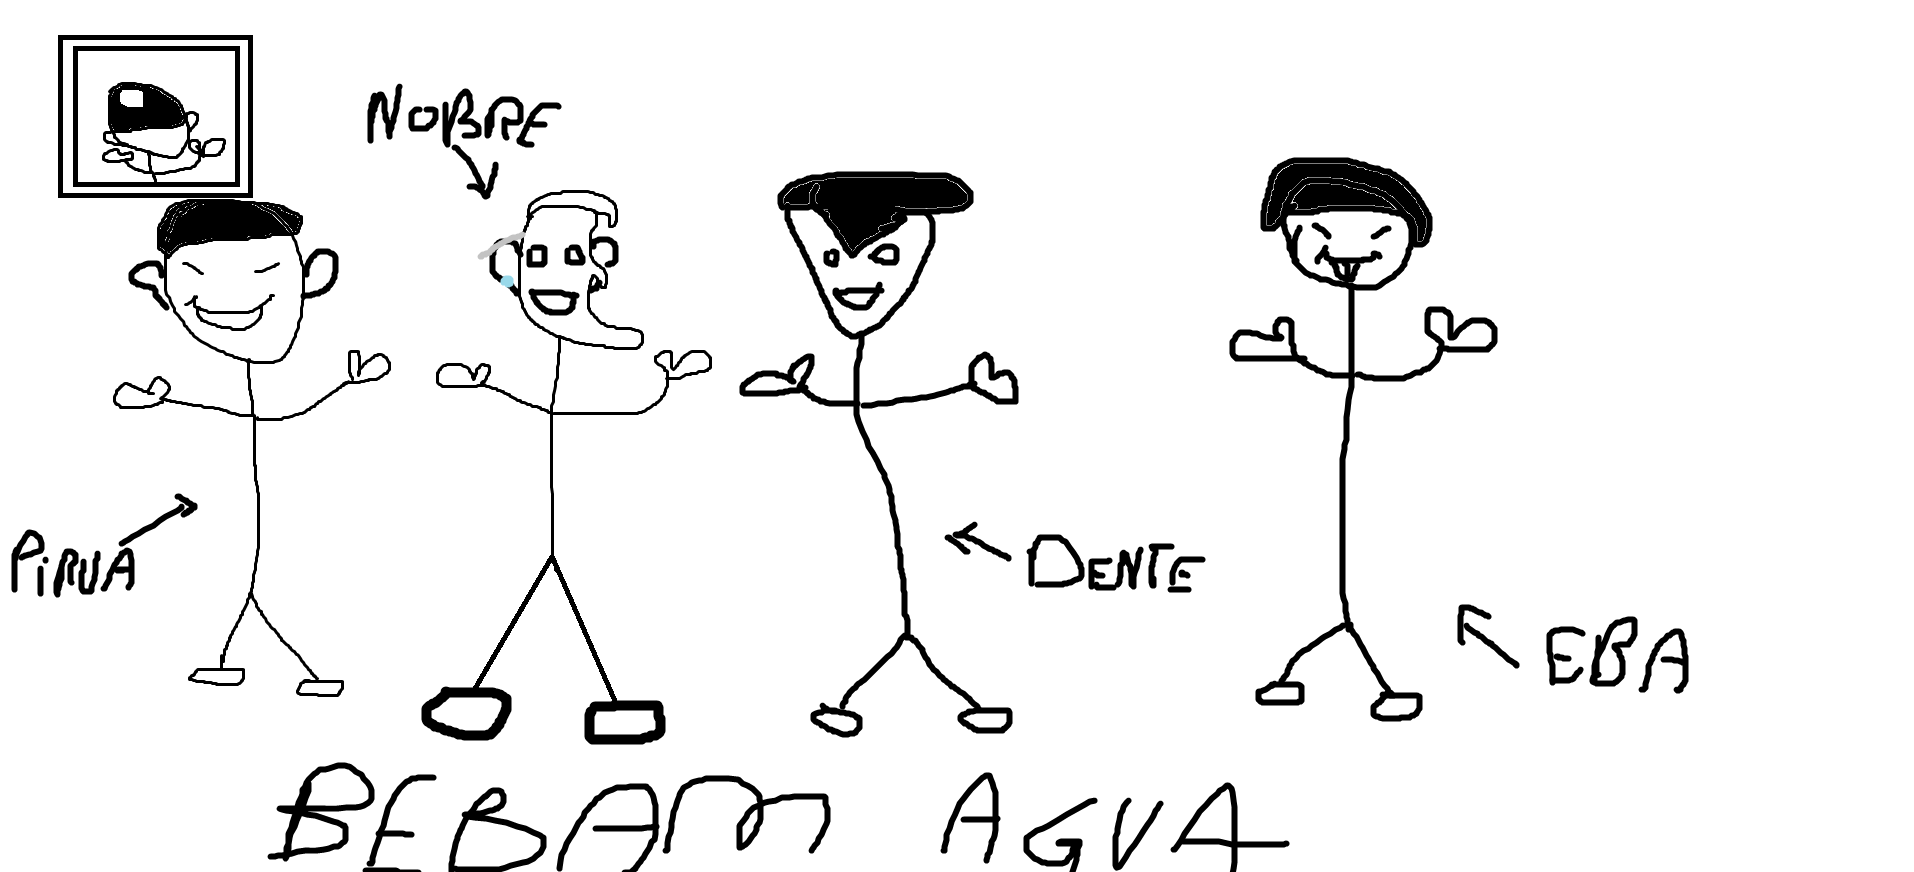 NOBRE
PiRUA
DENTE
EBA
BEBAM AGUA